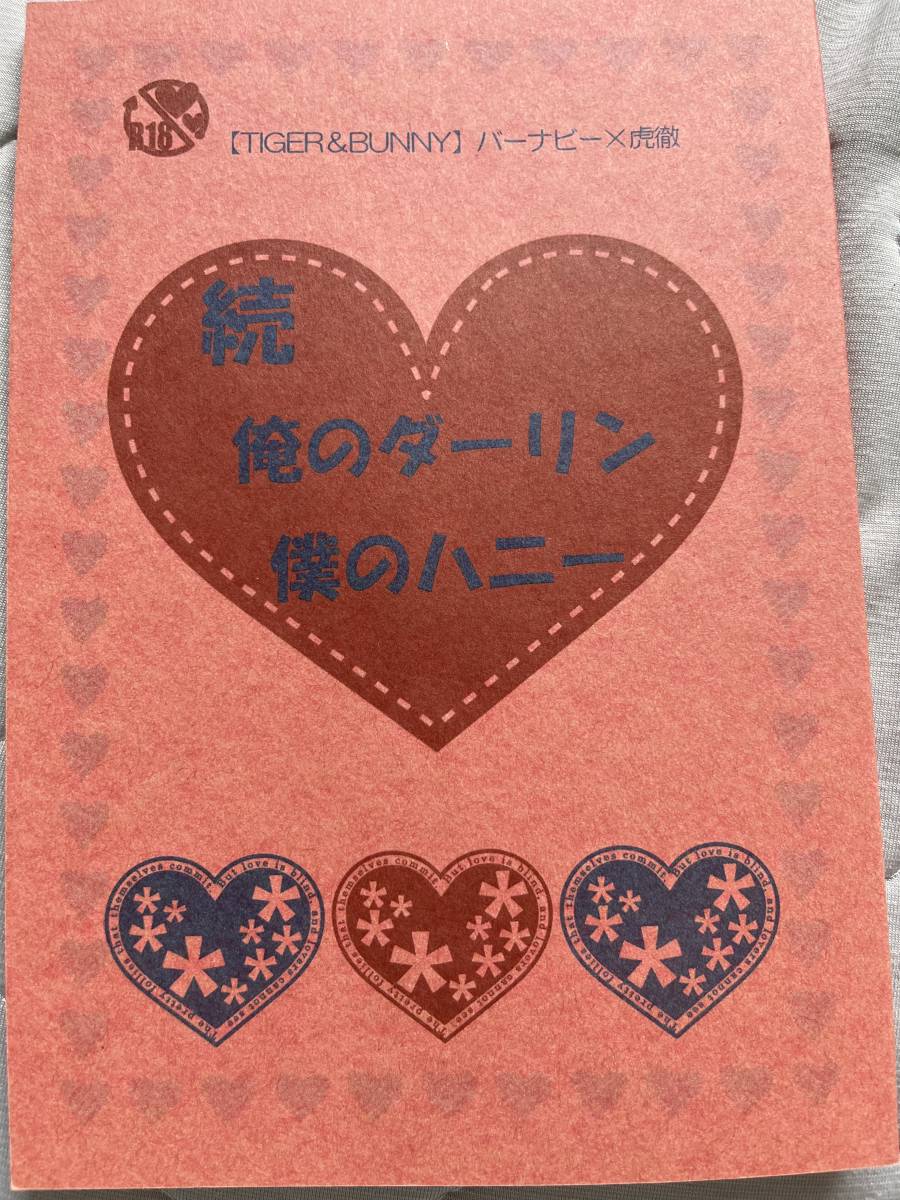 R18
【TIGER&BUNNY】バーナビー×虎徹
続
俺のダーリン
僕のハニー
But love is blind, and lovers cannot see The pretty follies that themselves commit.
But love is blind, and lovers cannot see The pretty follies that themselves commit.
But love is blind, and lovers cannot see The pretty follies that themselves commit.